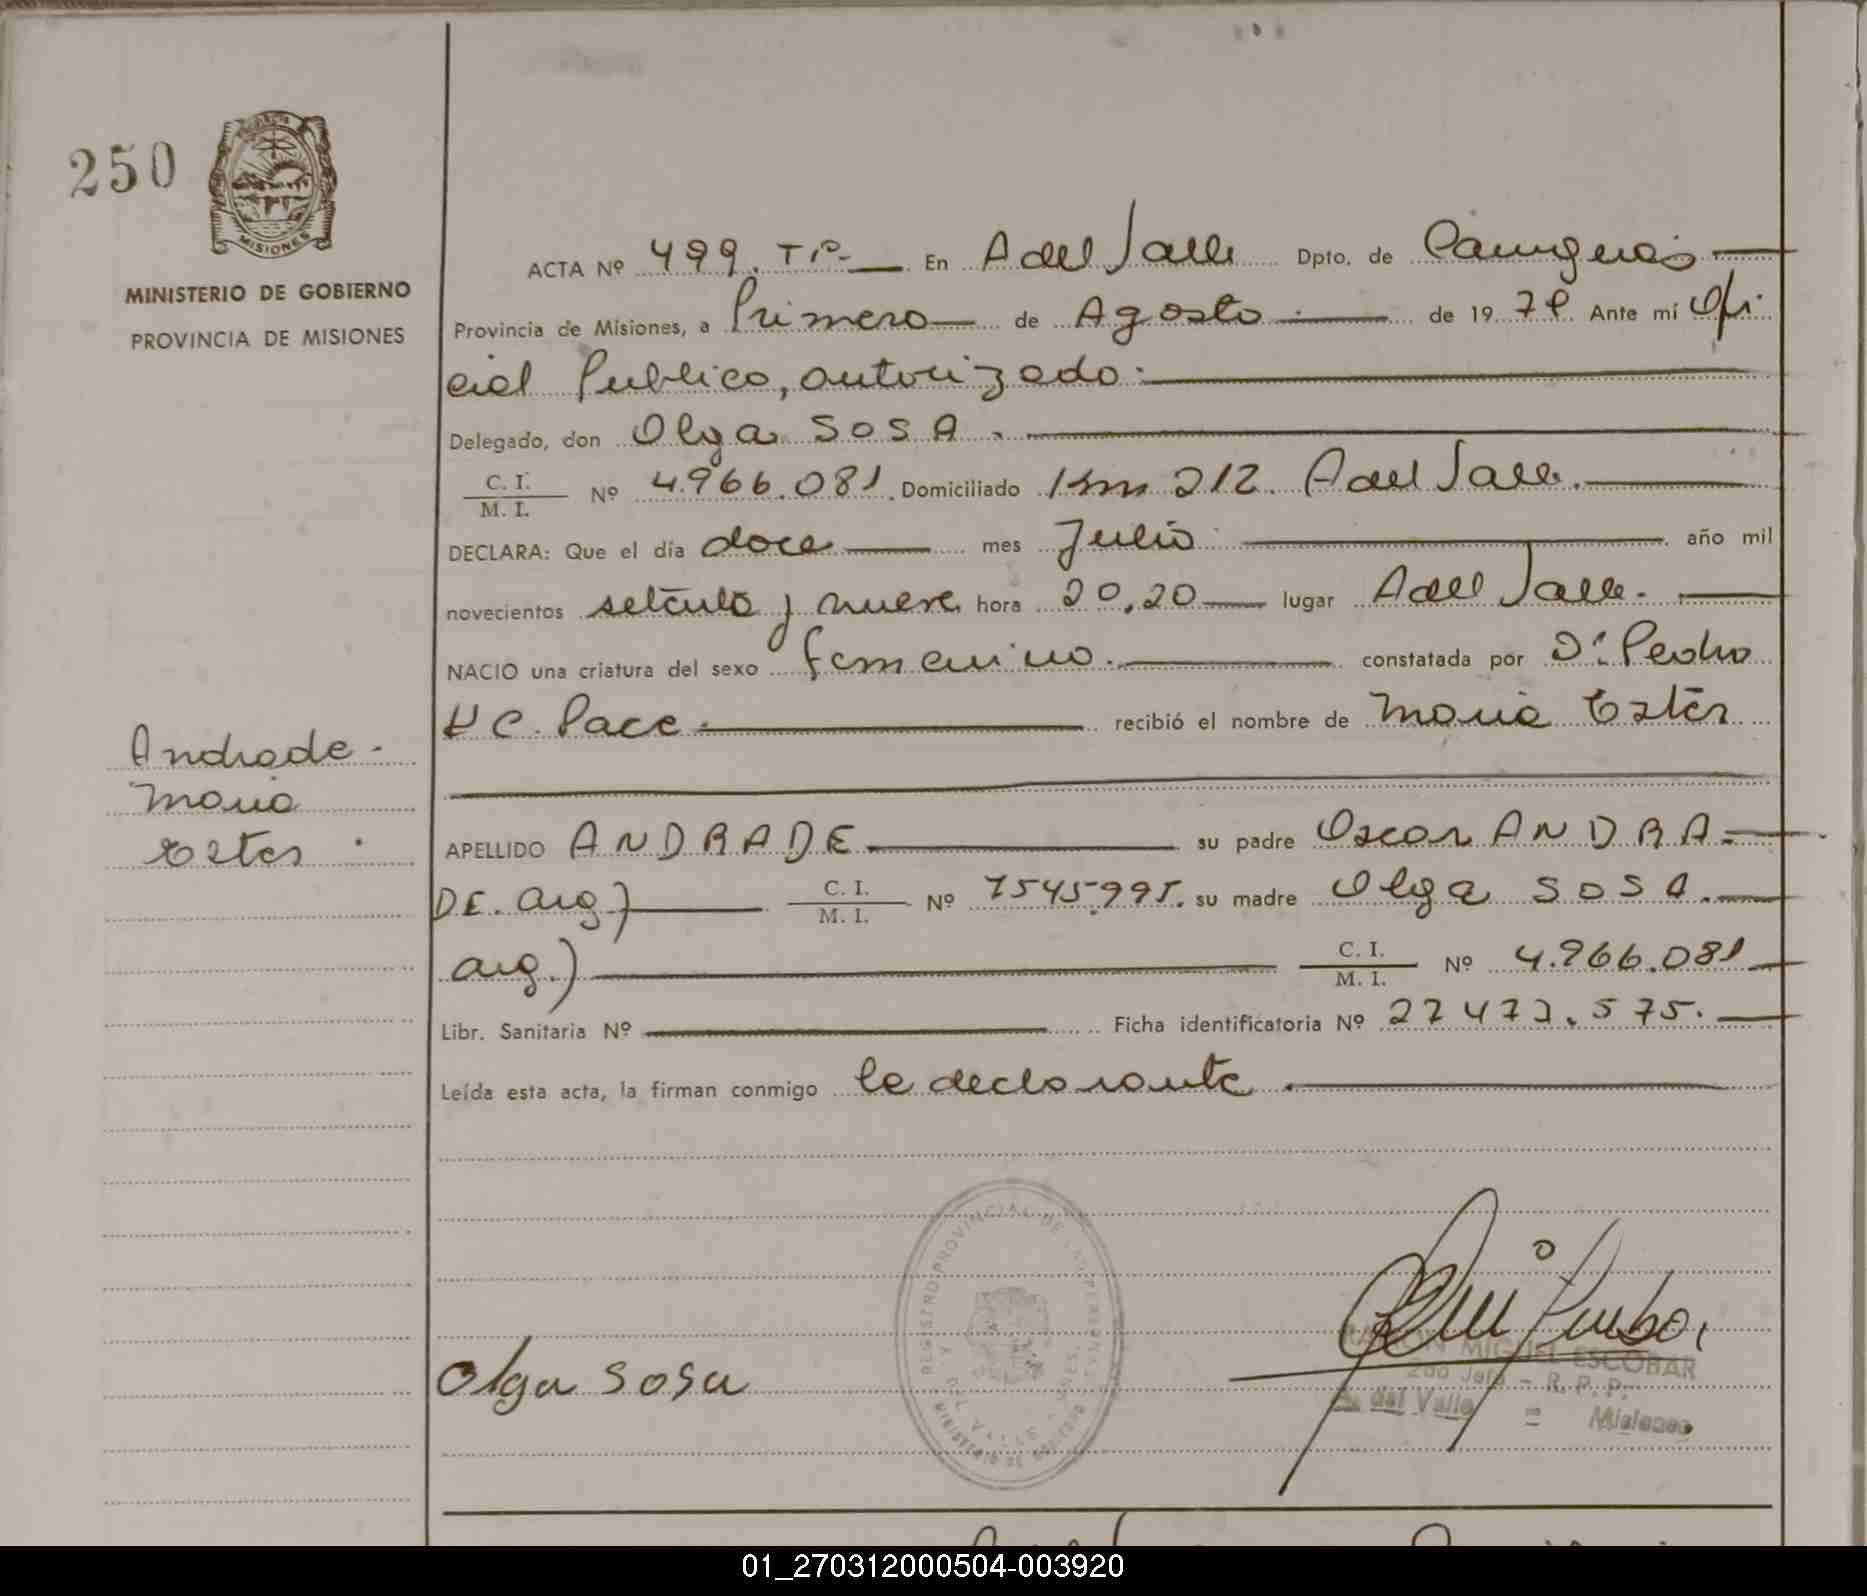 250
MISIONES
MINISTERIO DE GOBIERNO
PROVINCIA DE MISIONES
ACTA Nº 499. TP- En A del Valle Dpto. de Cainguás
Provincia de Misiones, a Primero de Agosto de 1979 Ante mí Ofi
cial Publico, autorizado.
Delegado, don Olga SOSA.
C. I.
M. I.
Nº 4.966.081. Domiciliado Km 212. A del Valle.
DECLARA: Que el día doce mes Julio año mil
novecientos setenta y nueve hora 20,20 lugar A del Valle.
NACIO una criatura del sexo femenino. constatada por Dr. Pedro
H C. Pace. recibió el nombre de Maria Ester
Andrade -
Maria
Ester
APELLIDO ANDRADE su padre Oscar ANDRA=
DE. arg) C. I.
M. I.
Nº 7545.995. su madre Olga SOSA.
arg.) C. I.
M. I.
Nº 4.966.081
Libr. Sanitaria Nº Ficha identificatoria Nº 27 472.575.
Leída esta acta, la firman conmigo la declarante.
REGISTRO PROVINCIAL DE LAS PERSONAS
RAMON MIGUEL ESCOBAR
2do Jefe - R. P. P.
A. del Valle = Misiones
Olga Sosa
01_270312000504-003920